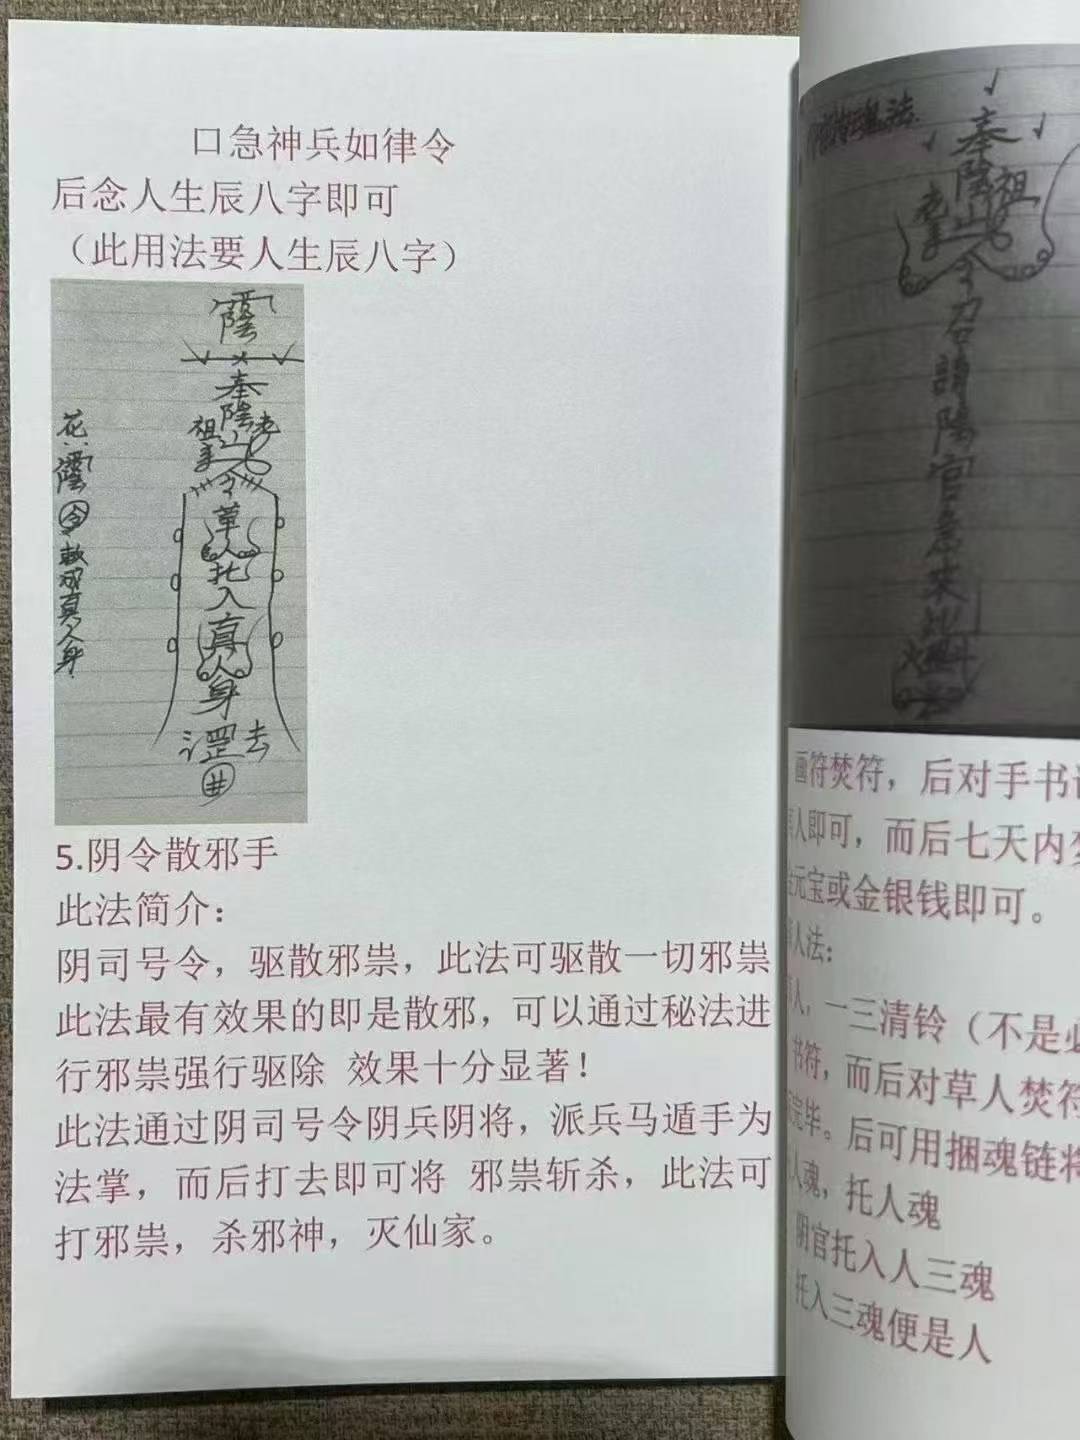 口急神兵如律令
后念人生辰八字即可
（此用法要人生辰八字）
奉陰山
老祖
令
草人托入真人身
罡
井
花:
令
敕成真人身
5.阴令散邪手
此法简介：
阴司号令，驱散邪祟，此法可驱散一切邪祟
此法最有效果的即是散邪，可以通过秘法进
行邪祟强行驱除 效果十分显著！
此法通过阴司号令阴兵阴将，派兵马遁手为
法掌，而后打去即可将 邪祟斩杀，此法可
打邪祟，杀邪神，灭仙家。
奉陰山
老祖
令召請陽官急來
画符焚符，后对手书
人即可，而后七天内
元宝或金银钱即可。
人法：
人，一三清铃（不是
书符，而后对草人焚符
完毕。后可用捆魂链将
人魂，托人魂
阴官托入人三魂
托入三魂便是人